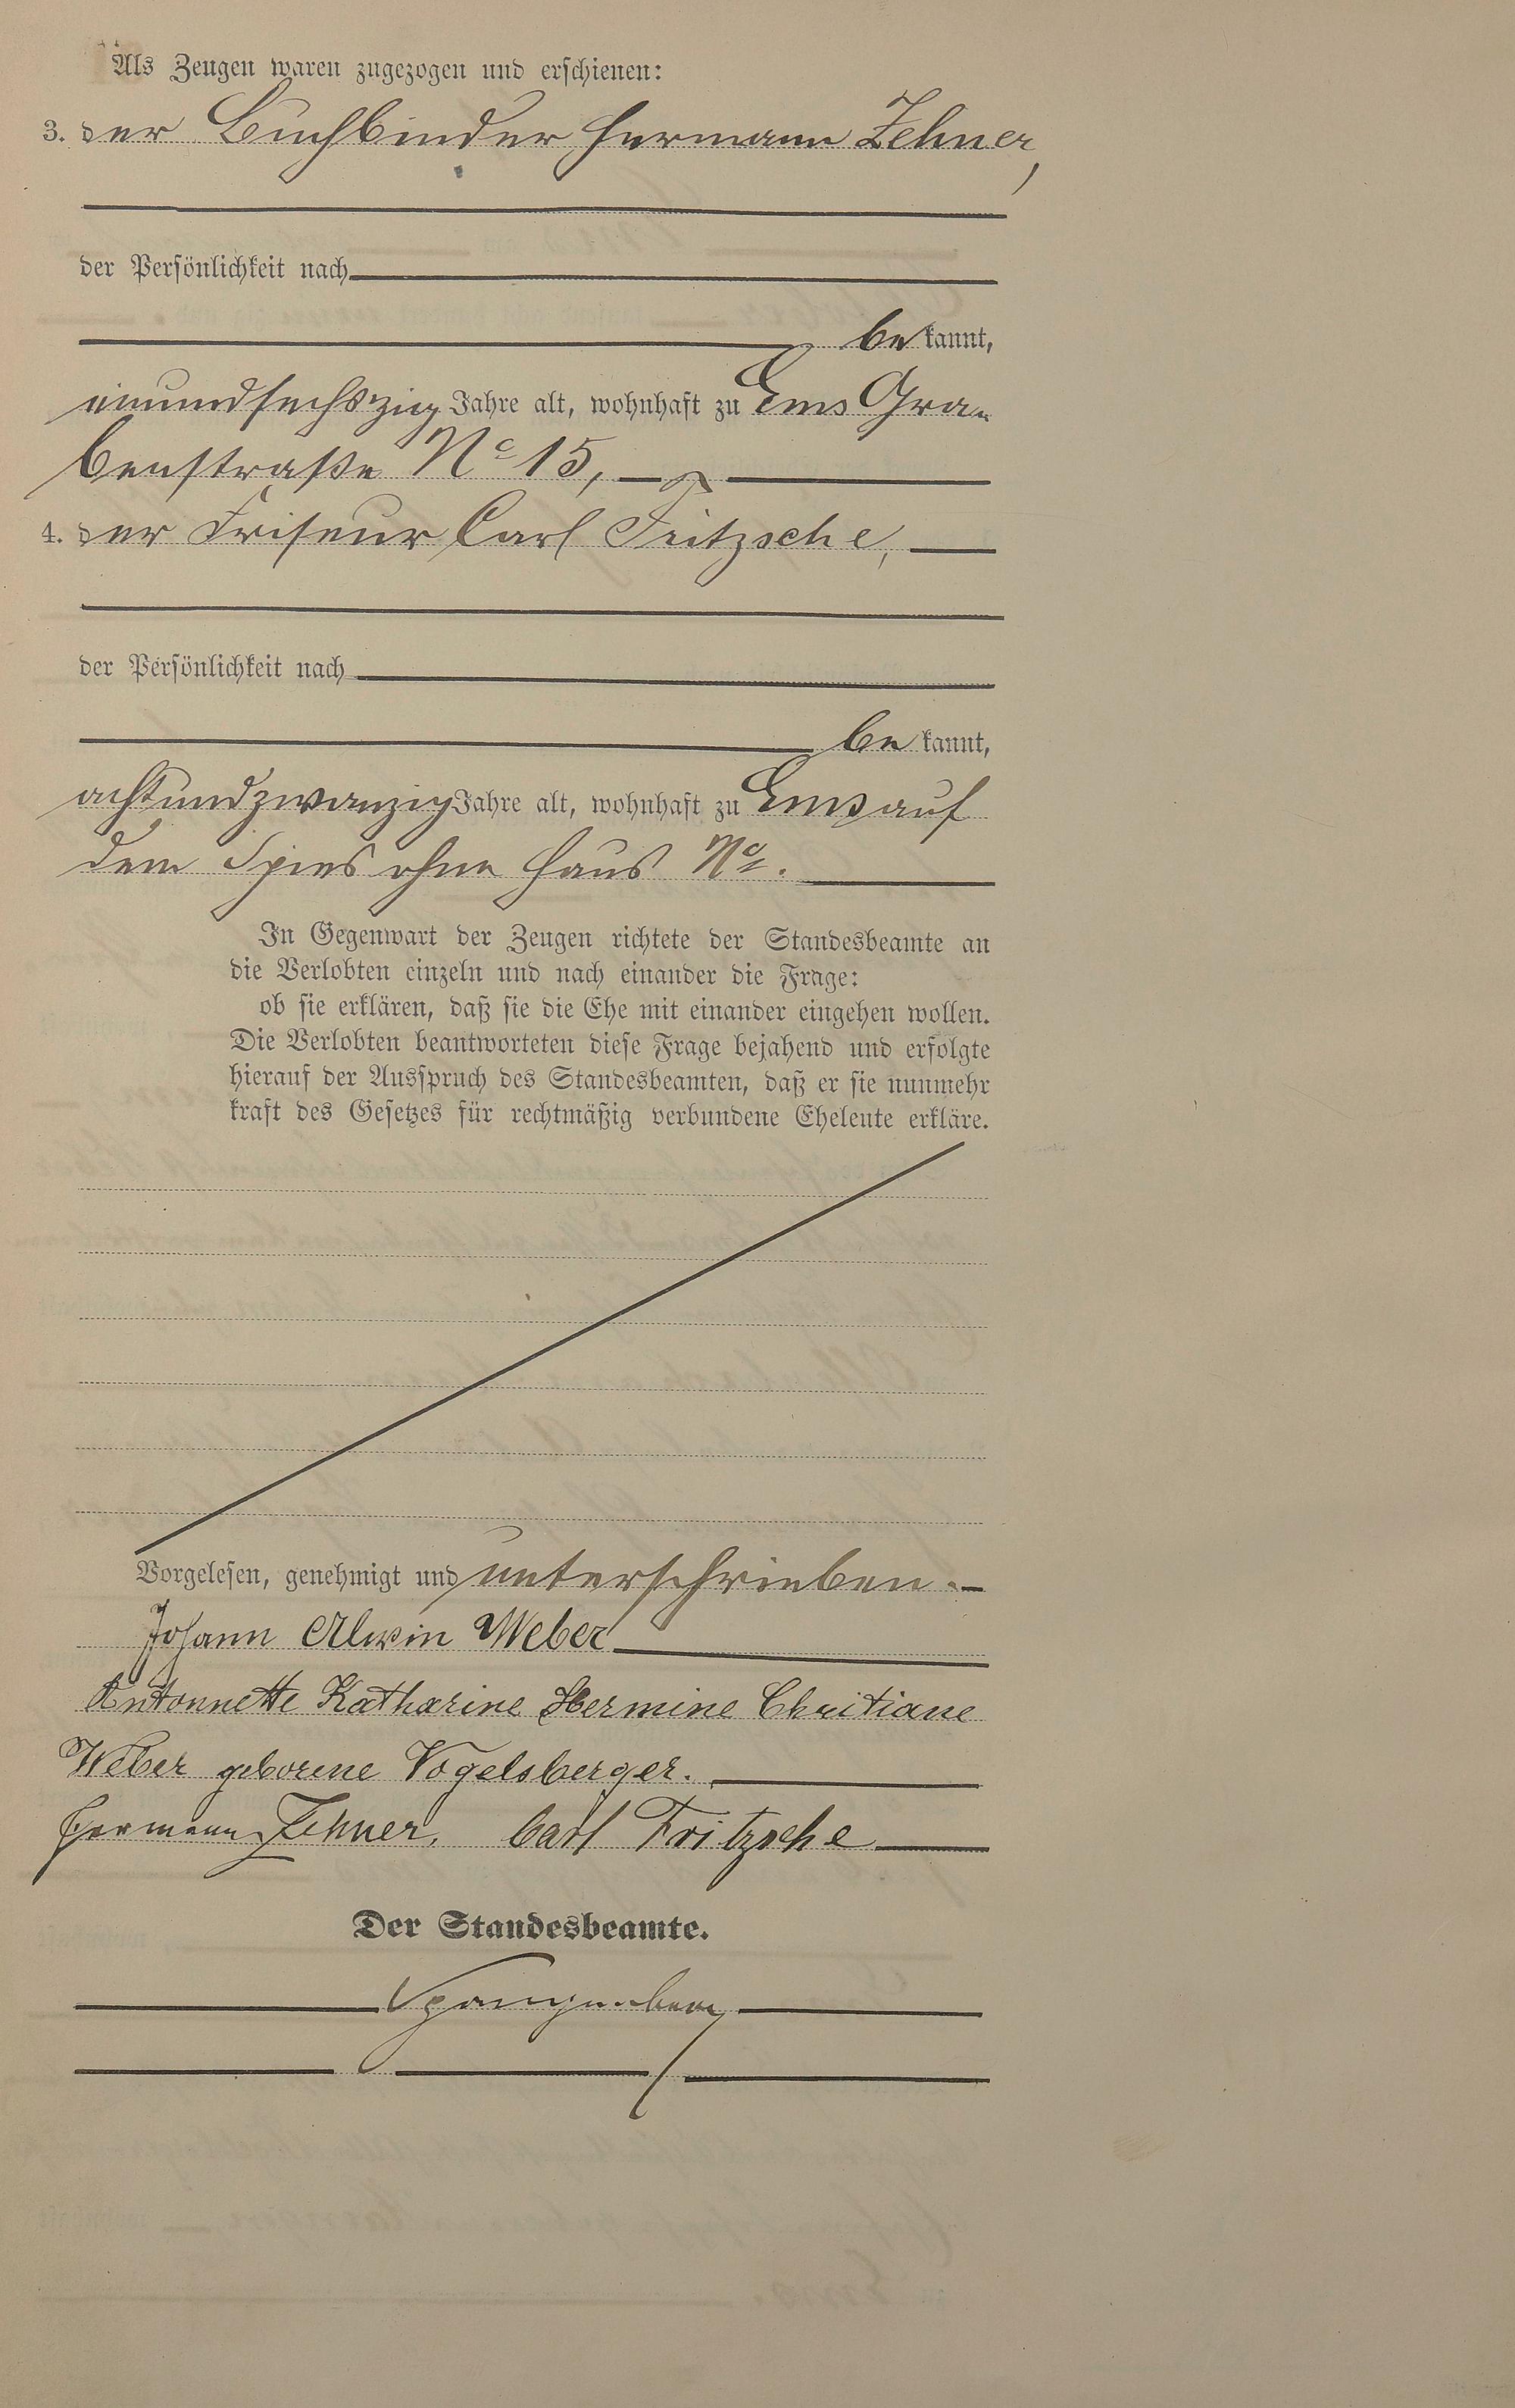 Als Zeugen waren zugezogen und erschienen:
3. der Buchbinder Hermann Zehner,
der Persönlichkeit nach
bekannt,
einundsechszig Jahre alt, wohnhaft zu Ems Gra-
benstraße No 15,
4. der Friseur Carl Fritzsche,
der Persönlichkeit nach
bekannt,
achtundzwanzig Jahre alt, wohnhaft zu Ems auf
dem Spies ohne Haus No.
In Gegenwart der Zeugen richtete der Standesbeamte an
die Verlobten einzeln und nach einander die Frage:
ob sie erklären, daß sie die Ehe mit einander eingehen wollen.
Die Verlobten beantworteten diese Frage bejahend und erfolgte
hierauf der Ausspruch des Standesbeamten, daß er sie nunmehr
kraft des Gesetzes für rechtmäßig verbundene Eheleute erkläre.
Vorgelesen, genehmigt und unterschrieben.
Johann Alwin Weber
Antonnette Katharine Hermine Chritiane
Weber geborene Vogelsberger.
Hermann Zehner, Carl Fritzsche
Der Standesbeamte.
Spangenberg